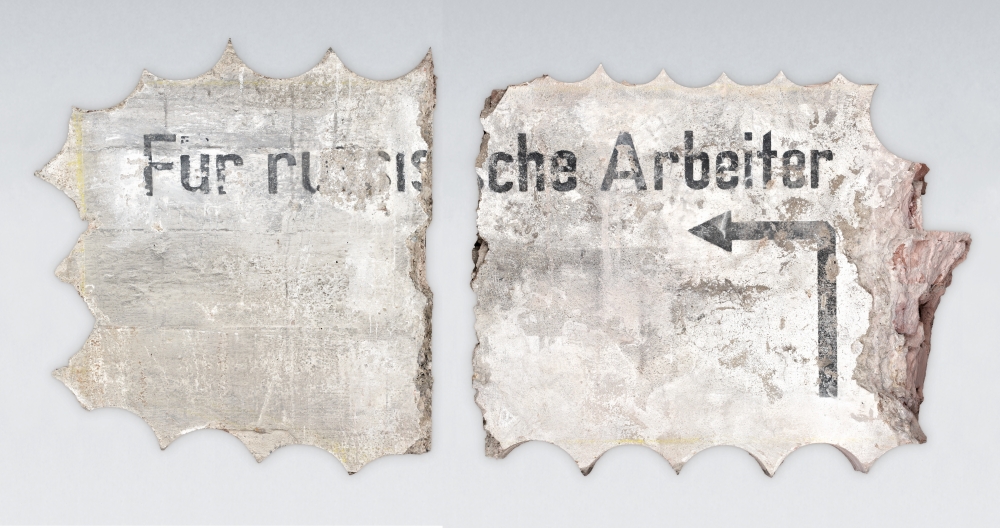 Für russische Arbeiter